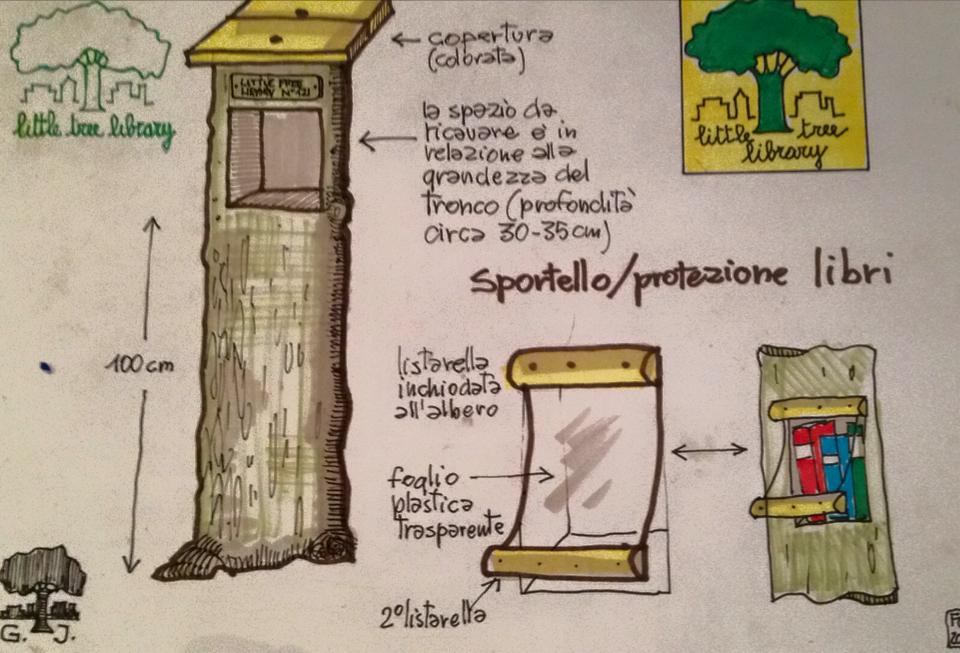 little tree library
LITTLE FREE
LIBRARY N°121
copertura
(colorata)
lo spazio da
ricavare e' in
relazione alla
grandezza del
tronco (profondità
circa 30-35cm)
little tree
library
Sportello/protezione libri
100cm
listarella
inchiodata
all'albero
foglio
plastica
trasparente
2° listarella
G. J.